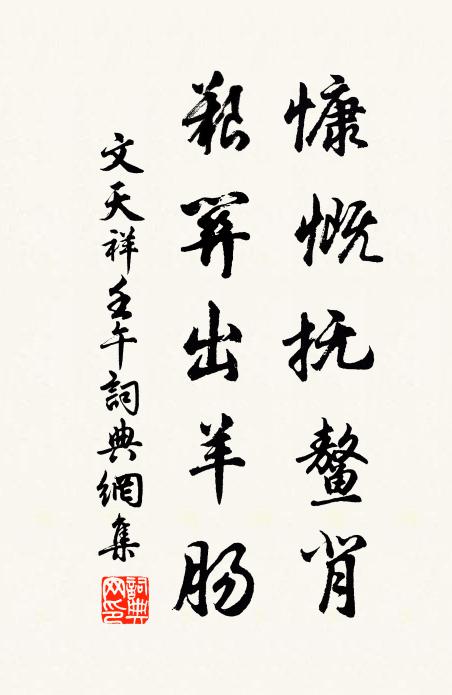 慷慨抚鳌背
艱関出羊肠
文天祥壬午詞典網集
詞典网印